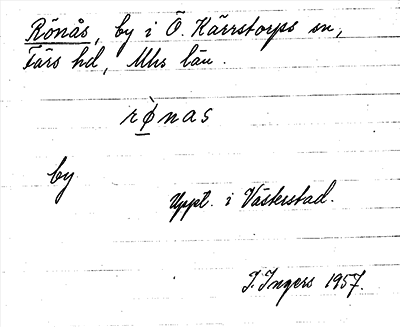 Rönås, by i Ö. Kärrstorps sn,
Färs hd, Mhs län.
rø̀nas
by
Uppl. i Västerstad.
I. Ingers 1957.